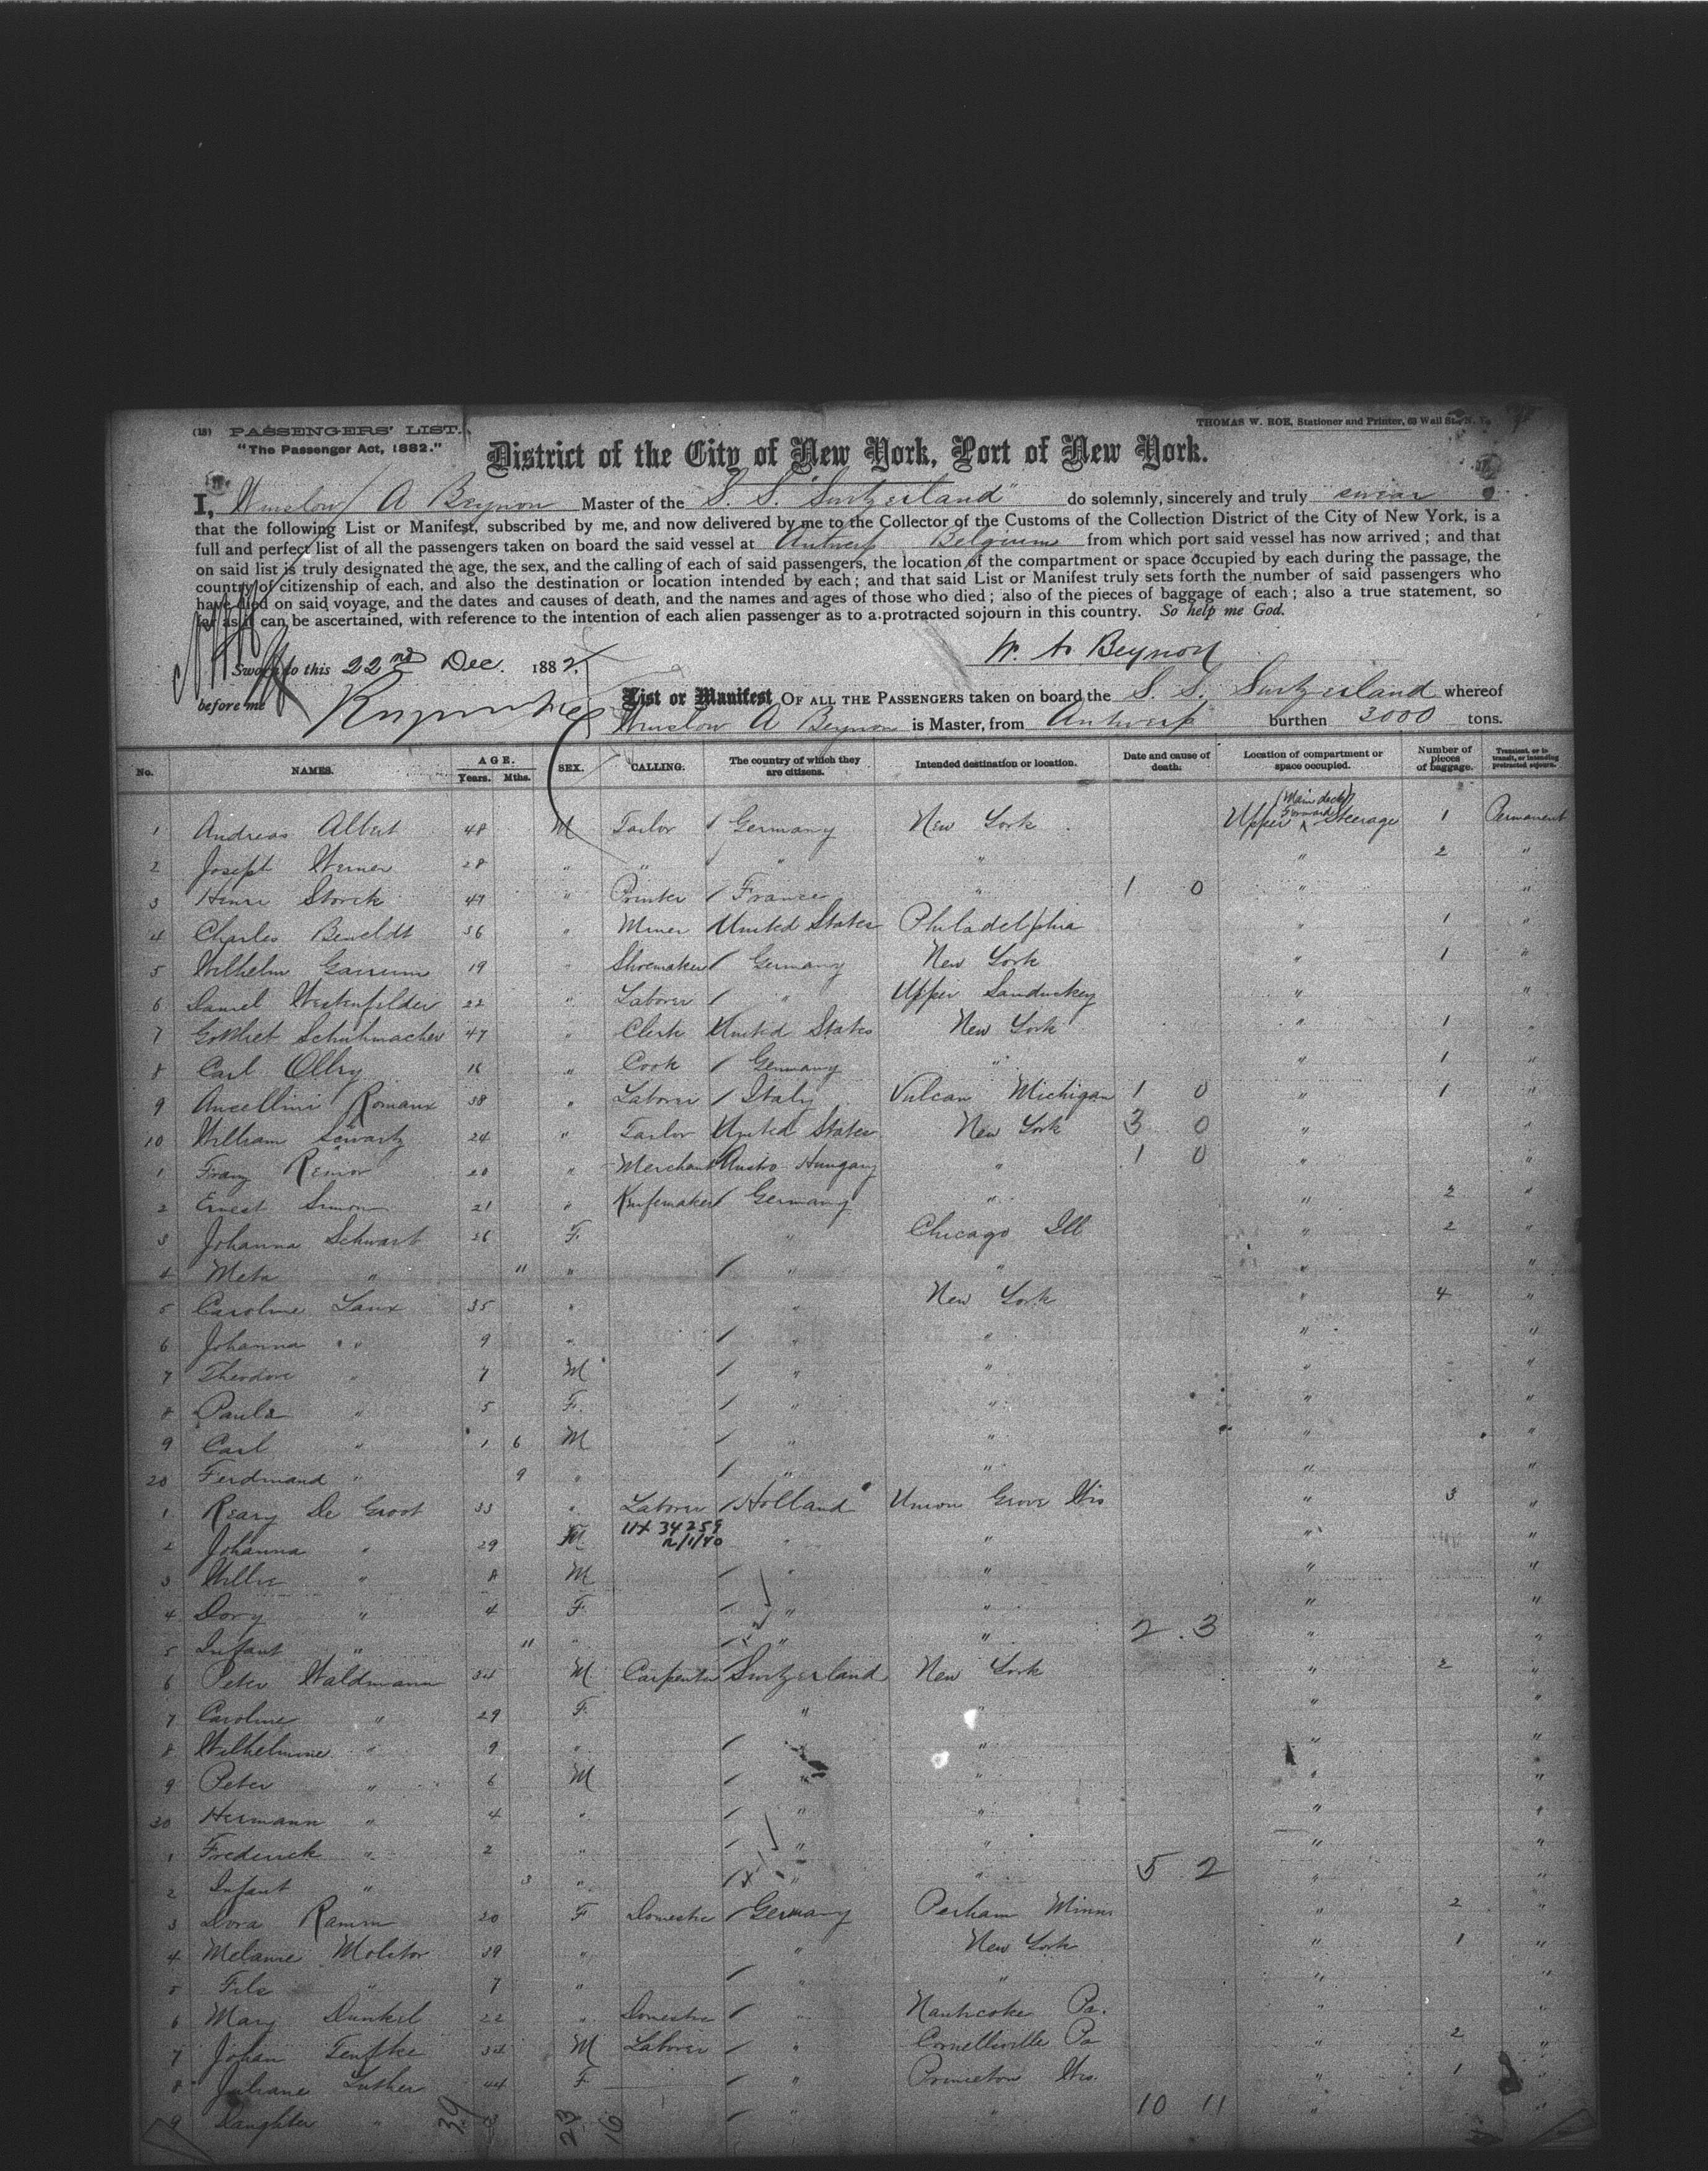 (13) PASSENGERS' LIST.
"The Passenger Act, 1882."
THOMAS W. ROE, Stationer and Printer, 63 Wall St., N. Y.
District of the City of New York, Port of New York.
I, Winslow A Beynon Master of the S. S. "Switzerland" do solemnly, sincerely and truly swear
that the following List or Manifest, subscribed by me, and now delivered by me to the Collector of the Customs of the Collection District of the City of New York, is a
full and perfect list of all the passengers taken on board the said vessel at Antwerp Belgium from which port said vessel has now arrived; and that
on said list is truly designated the age, the sex, and the calling of each of said passengers, the location of the compartment or space occupied by each during the passage, the
country of citizenship of each, and also the destination or location intended by each; and that said List or Manifest truly sets forth the number of said passengers who
have died on said voyage, and the dates and causes of death, and the names and ages of those who died; also of the pieces of baggage of each; also a true statement, so
far as it can be ascertained, with reference to the intention of each alien passenger as to a protracted sojourn in this country. So help me God.
W. A. Beynon
Sworn to this 22nd Dec. 1882
before me
List or Manifest OF ALL THE PASSENGERS taken on board the S. S. Switzerland whereof
Winslow A Beynon is Master, from Antwerp burthen 3000 tons.
No. NAMES. AGE. Years. Mths. SEX. CALLING. The country of which they are citizens. Intended destination or location. Date and cause of death. Location of compartment or space occupied. Number of pieces of baggage. Transient, or in transit, or intending protracted sojourn.
1 Andreas Albert 48 M Tailor / Germany New York (Main deck) Upper Forward Steerage 1 Permanent
2 Joseph Werner 28 " " / " " " 2 "
3 Henri Storck 47 " Printer / France " 1 0 " "
4 Charles 36 " Miner United States Philadelphia " 1 "
5 Wilhelm 19 " Shoemaker / Germany New York " 1 "
6 Daniel Westenfelder 22 " Laborer / " Upper Sandusky " "
7 Gottliet Schuhmacher 47 " Clerk United States New York " 1 "
8 Carl Ollry 16 " Cook / Germany " " 1 "
9 Ancellini Romanx 38 " Laborer / Italy Vulcan Michigan 1 0 " 1 "
10 William Schwartz 24 " Tailor United States New York 3 0 " "
1 Franz 20 " Merchant Austro Hungary " 1 0 " "
2 Ernest Simon 21 " Knifemaker / Germany " " 2 "
3 Johanna Schwart 26 F " Chicago Ill " 2 "
4 Meta " 11 " / " " " "
5 Caroline Laux 35 " " New York " 4 "
6 Johanna " 9 " / " " " "
7 Theodore " 7 M / " " " "
8 Paula " 5 F. / " " " "
9 Carl " 1 6 M / " " " "
20 Ferdinand " 9 " / " " " "
1 Reary De Groot 33 " Laborer / Holland Union Grove Wis " 3 "
11X 34259
2/1/40
2 Johanna " 29 " " " "
3 Willie " 8 M / " " " "
4 Dory " 4 F / " " " "
5 Infant " 11 " / x " " 2 . 3 " "
6 Peter Waldmann 34 M Carpenter Switzerland New York " 2 "
7 Caroline " 29 F " " " "
8 Wilhelmine " 9 " / " " "
9 Peter " 6 M / " " " "
30 Hermann " 4 " / " " " "
1 Frederick " 2 " / " " " "
2 Infant " 3 " / x " " 5 2 " "
3 Dora Ramm 20 F Domestic / Germany Perham Minn " 2 "
4 Melanie Molitor 39 " " New York " 1 "
5 " 7 " / " " " "
6 Mary Dunkel 22 " Domestic / " Nanticoke Pa. " "
7 Johan 34 M Laborer / " Connellsville Pa " 2 "
8 Juliane Luther 44 F / " Princeton Wis. " 1 "
9 Daughter " / " " 10 11 " "
39
23
16